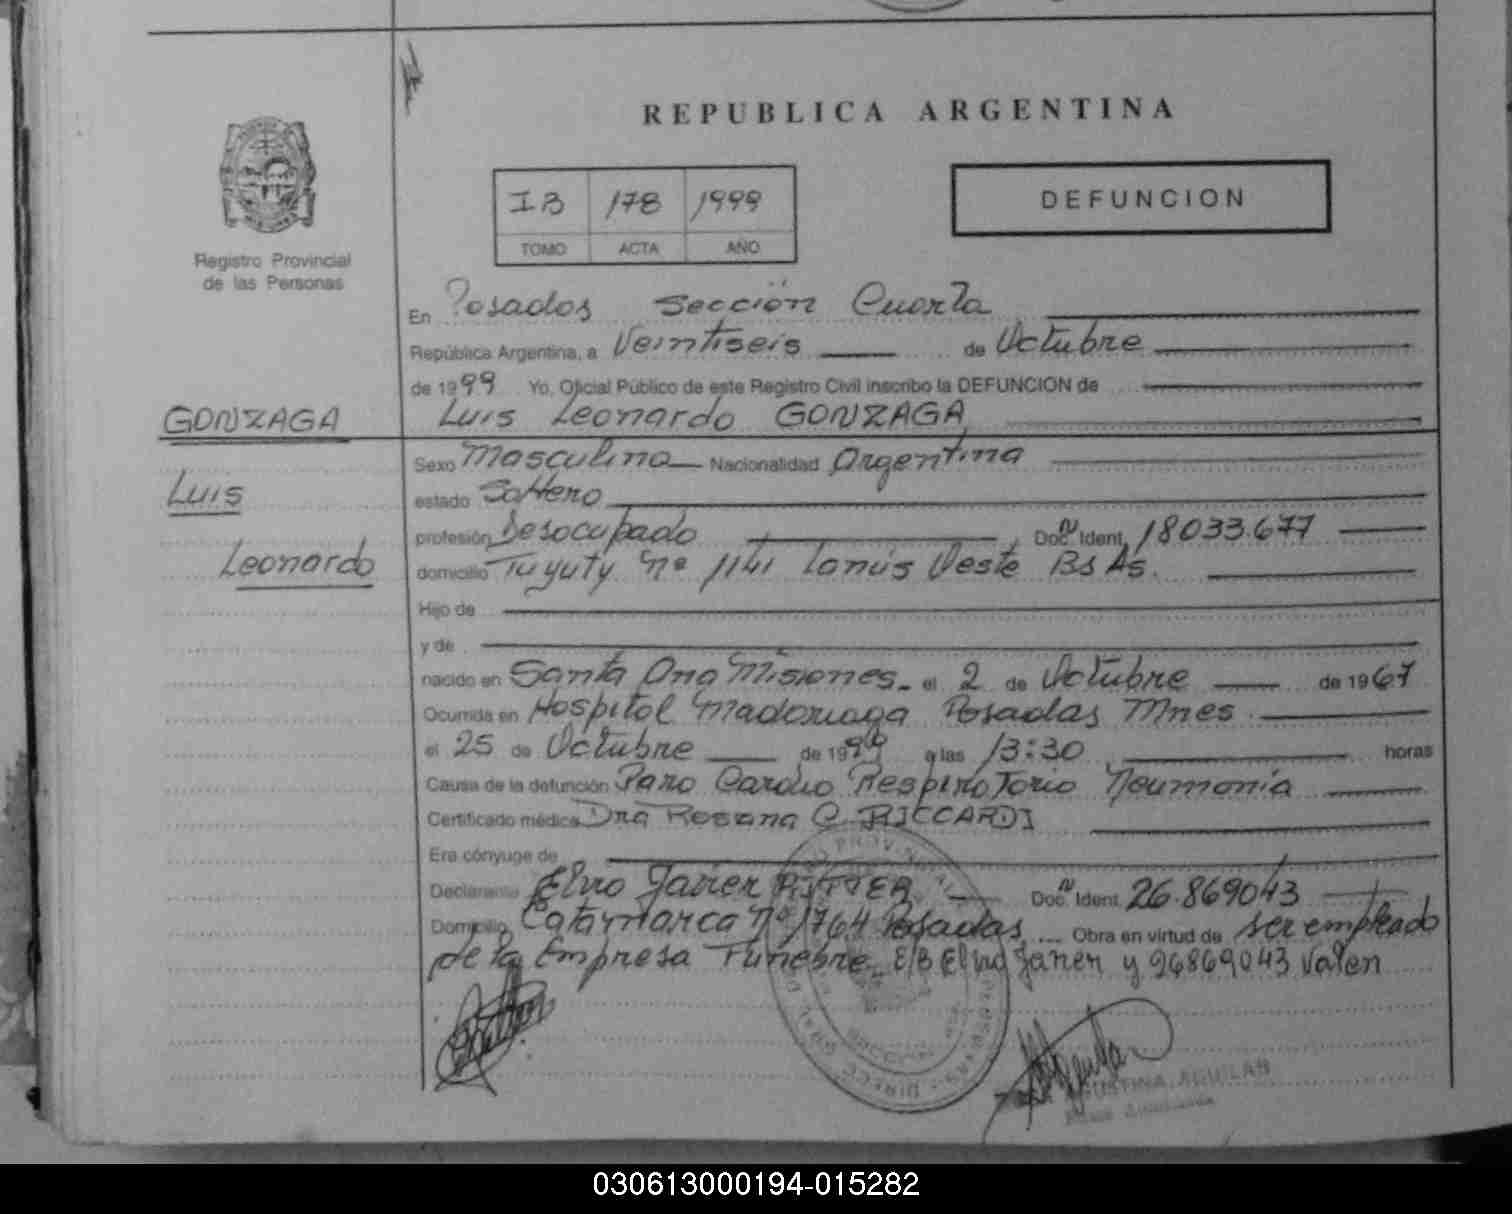 REPUBLICA ARGENTINA
IB 178 1999
TOMO ACTA AÑO
DEFUNCION
Registro Provincial
de las Personas
En Posadas Sección Cuarta
República Argentina, a Veintiseis de Octubre
de 1999 Yo, Oficial Público de este Registro Civil inscribo la DEFUNCION de
GONZAGA Luis Leonardo GONZAGA
Sexo Masculino Nacionalidad Argentina
Luis estado Soltero
profesión Desocupado Doc. Nº Ident. 18033.677
Leonardo domicilio Tuyuty nº 1141 Lanús Oeste Bs As.
Hijo de
y de
nacido en Santa Ana Misiones el 2 de Octubre de 1967
Ocurrida en Hospital Madariaga Posadas Mnes
el 25 de Octubre de 1999 a las 13:30 horas
Causa de la defunción Paro Cardio Respiratorio Neumonía
Certificado médico Dra Rosana C. RICCARDI
Era cónyuge de
Declarante Elvio Javier RITTER Doc. Nº Ident. 26.869043
Domicilio Catamarca Nº 1764 Posadas Obra en virtud de ser empleado
de la Empresa Fúnebre E/B Elvio Javier y 26869043 Valen
AGUSTINA AGUILAR
030613000194-015282